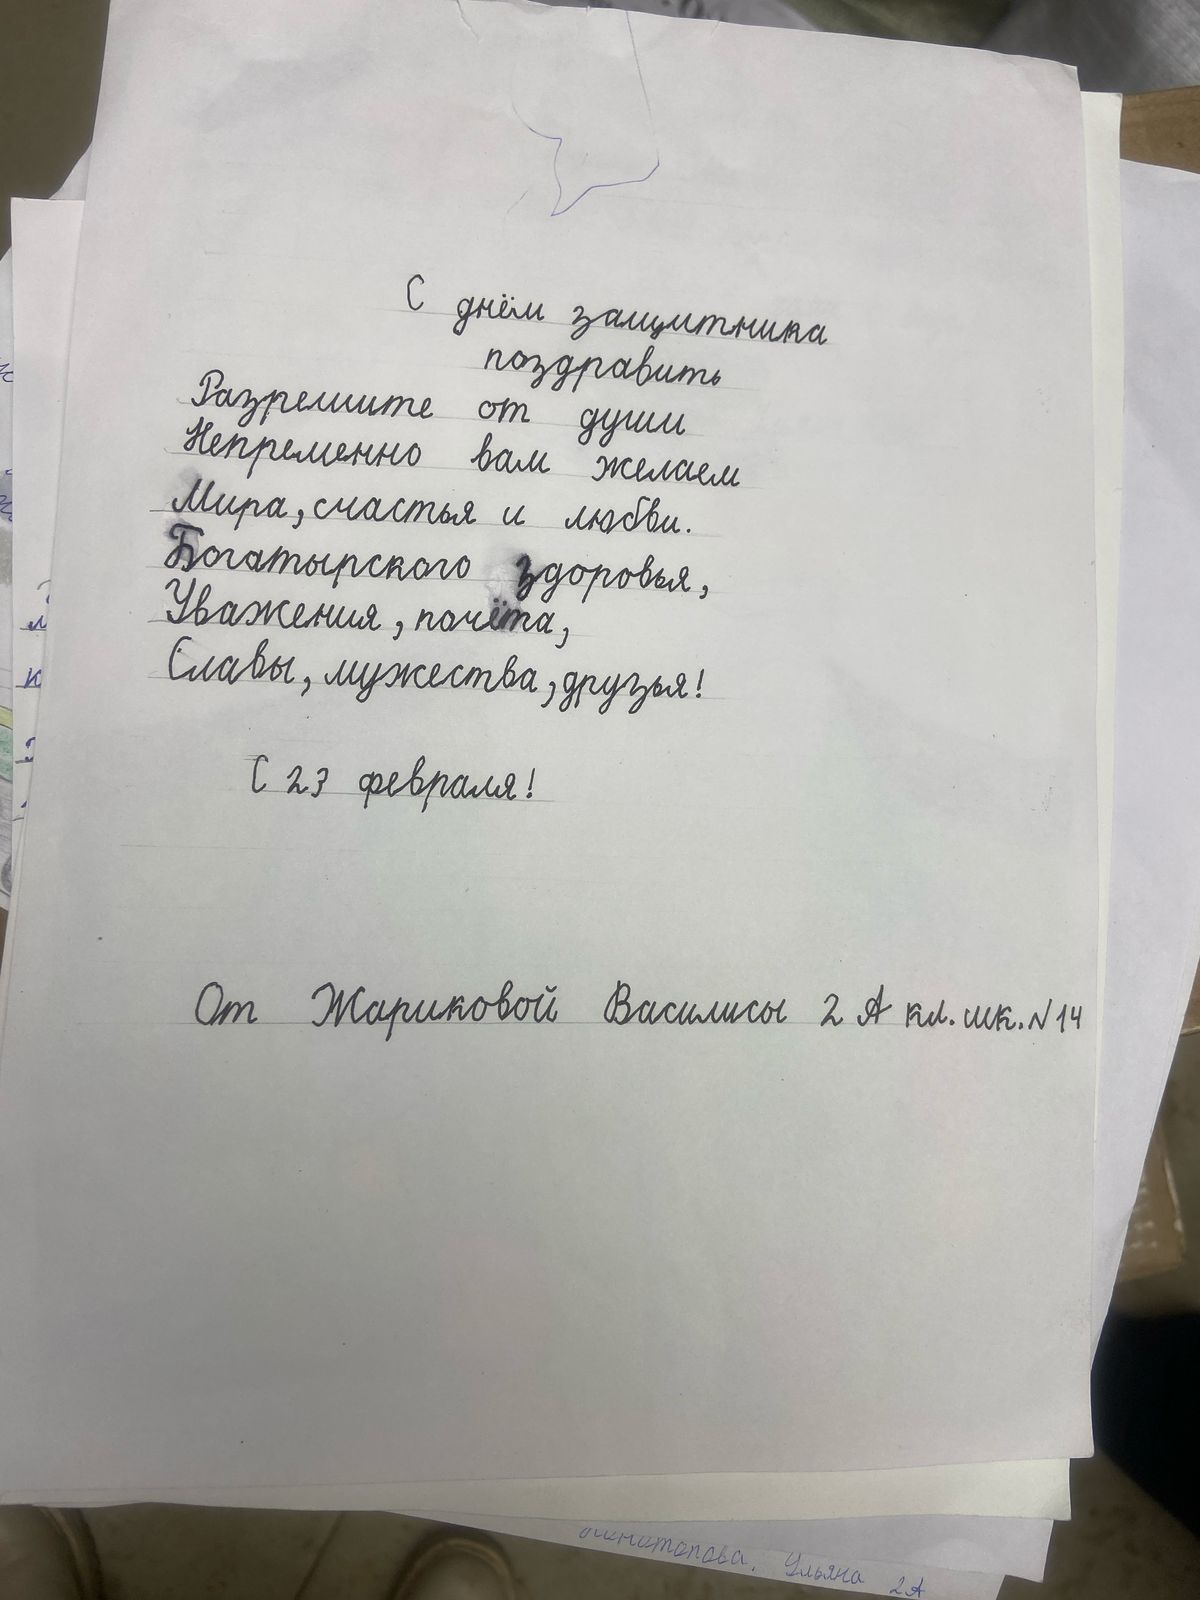 С днём защитника
поздравить
Разрешите от души
Непременно вам желаем
Мира, счастья и любви.
Богатырского здоровья,
Уважения, почёта,
Славы, мужества, друзья!
С 23 февраля!
От Жариковой Василисы 2 А кл. шк. N 14
Ульяна 2А